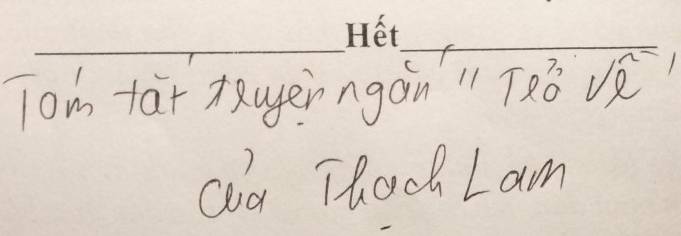 Hết
Tóm tắt truyện ngắn "Trở về"
của Thạch Lam